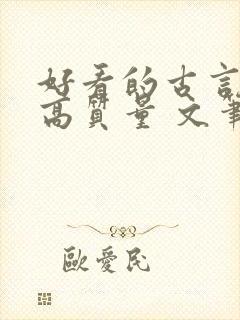 好看的古言
高質量 文筆
歐愛民